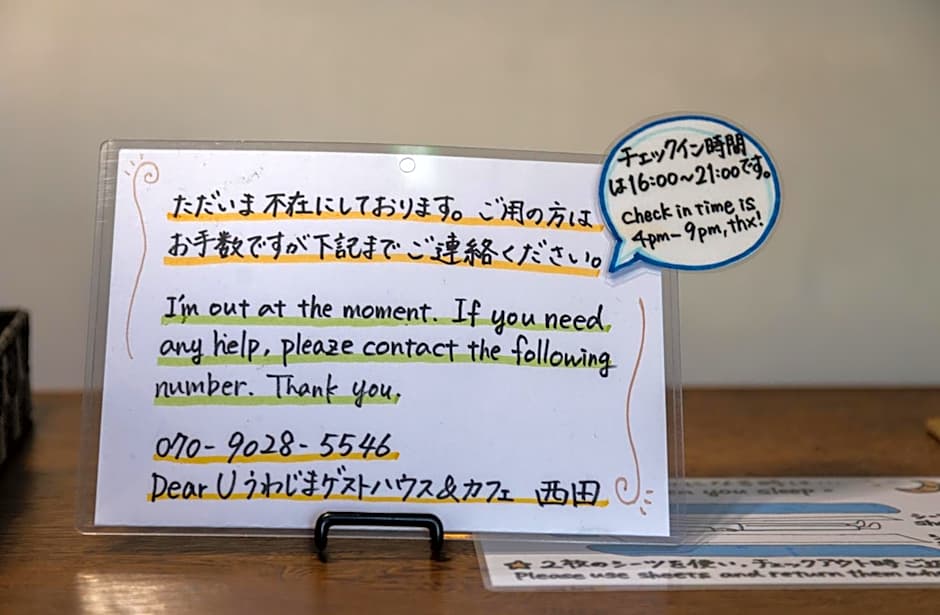 チェックイン時間
は16:00〜21:00です。
check in time is
4pm-9pm, thx!
ただいま不在にしております。ご用の方は
お手数ですが下記までご連絡ください。
I'm out at the moment. If you need
any help, pleaze contact the following
number. Thank you.
070-9028-5546
Dear U うわじまゲストハウス&カフェ 西田
you sleep
☆2枚のシーツを使い、チェックアウト時
Please use sheets and return them